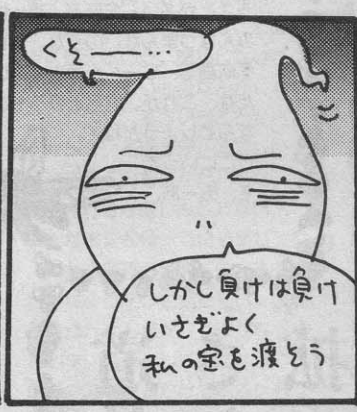 くそ――…
しかし負けは負け
いさぎよく
私の宝を渡そう